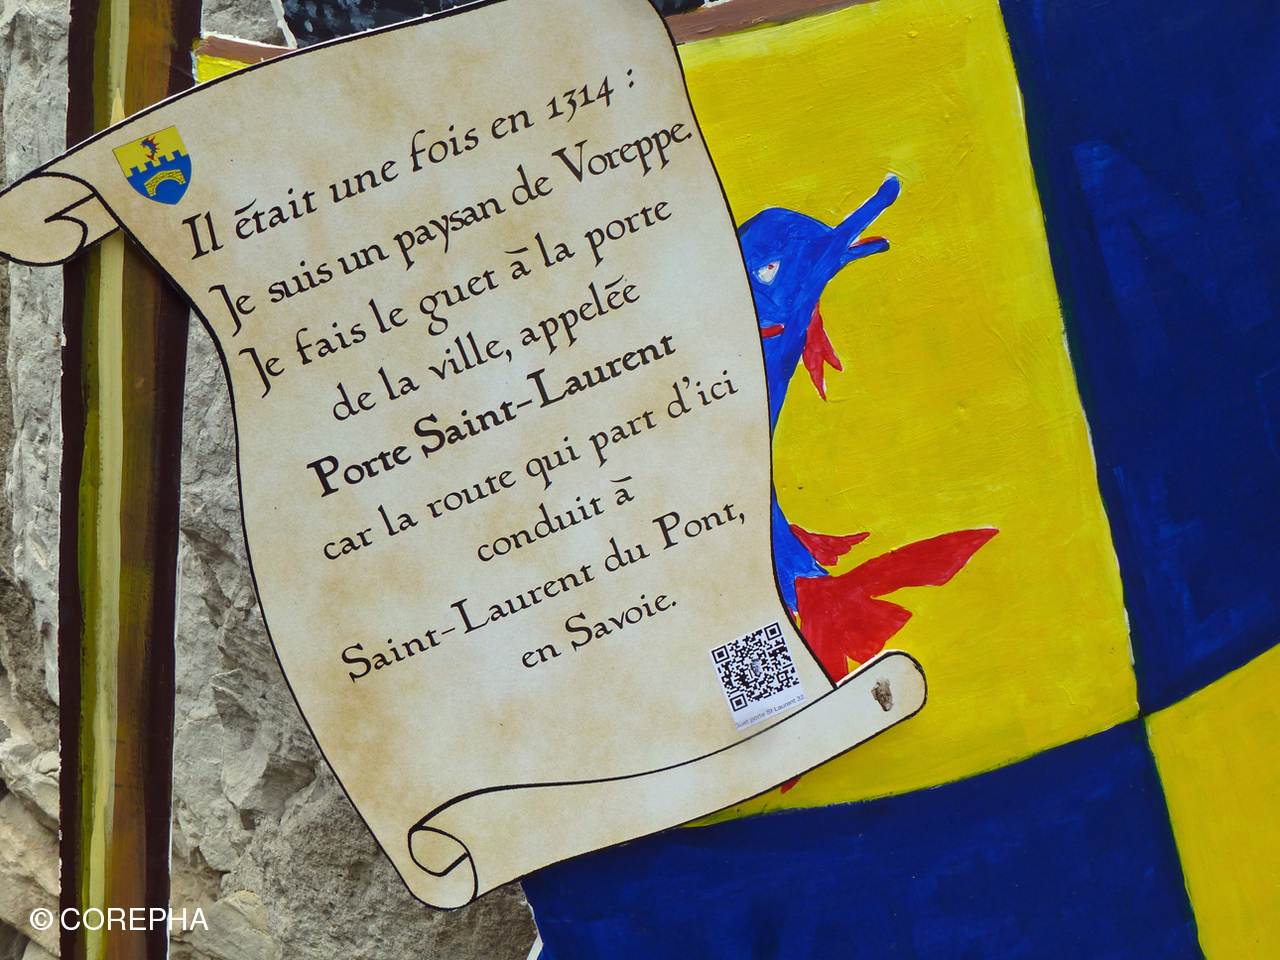 Il était une fois en 1314 :
Je suis un paysan de Voreppe.
Je fais le guet à la porte
de la ville, appelée
Porte Saint-Laurent
car la route qui part d'ici
conduit à
Saint-Laurent du Pont,
en Savoie.
Guet porte St-Laurent 32
© COREPHA